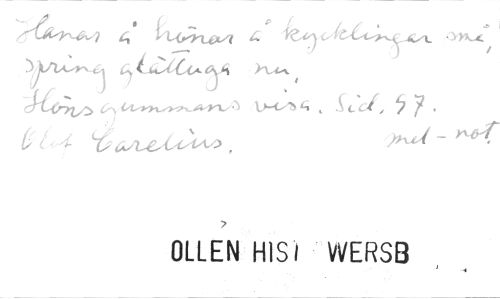 Hanar å hönar å kycklingar små,
spring glättuga nu,
Hönsgummans visa. Sid. 97.
Olof Carelius. mel-not.
OLLEN HIST WERSB